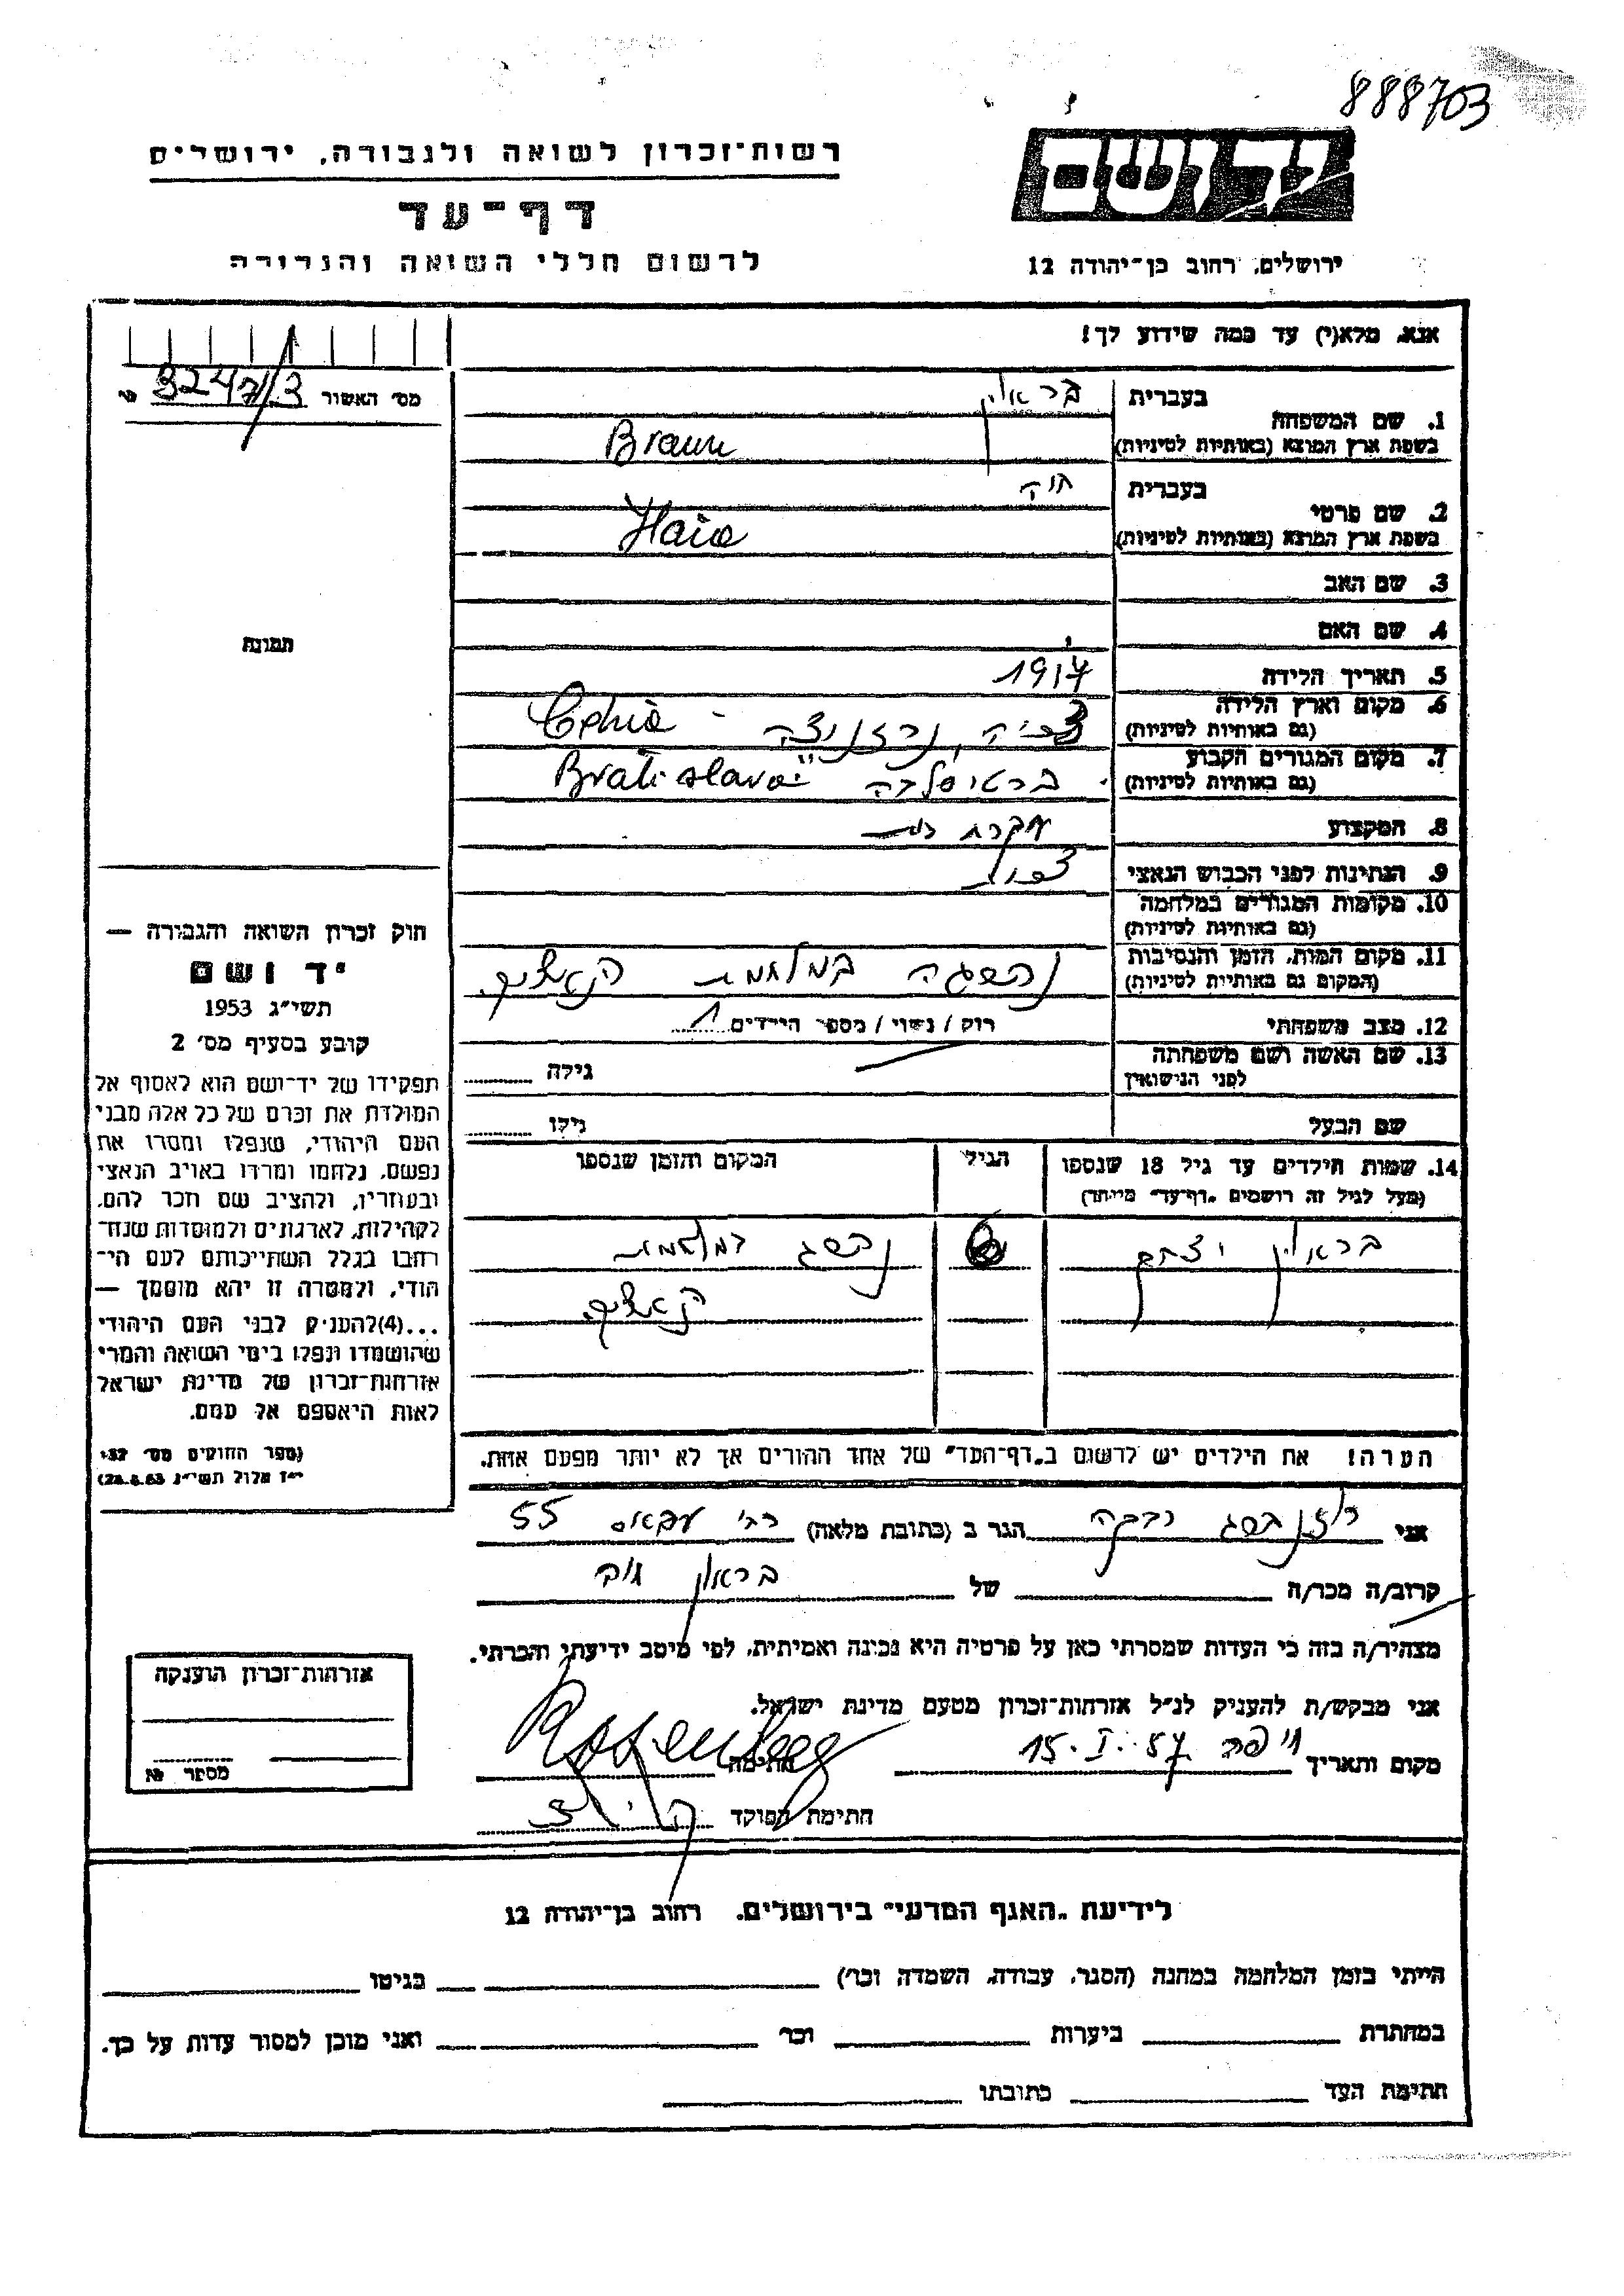 888703
רשות־זכרון לשואה ולגבורה, ירושלים
דף־עד
לרשום חללי השואה והגבורה
יד ושם
ירושלים, רחוב בן־יהודה 12
אנא, מלא(י) עד כמה שידוע לך!
מס׳ האשור 3247/3
תמונה
1. שם המשפחה
בעברית בראון
בשפת ארץ המוצא (באותיות לטיניות) Braun
2. שם פרטי
בעברית חיה
בשפת ארץ המוצא (באותיות לטיניות) Haia
3. שם האב
4. שם האם
5. תאריך הלידה 1917
6. מקום וארץ הלידה
(גם באותיות לטיניות)
7. מקום המגורים הקבוע ברטיסלבה Bratislava
(גם באותיות לטיניות)
8. המקצוע עקרת בית
9. הנתינות לפני הכבוש הנאצי
10. מקומות המגורים במלחמה
(גם באותיות לטיניות)
11. מקום המות, הזמן והנסיבות נהרגה במלחמת הנאצים
(המקום גם באותיות לטיניות)
12. מצב משפחתי רוק / נשוי / מספר הילדים 1
13. שם האשה ושם משפחתה גילה
לפני הנישואין
שם הבעל גילו
14. שמות הילדים עד גיל 18 שנספו הגיל המקום והזמן שנספו
(מעל לגיל זה רושמים „דף־עד״ מייחד)
בראון יצחק 6 נהרג במלחמת
הנאצים
הערה! את הילדים יש לרשום ב„דף־העד״ של אחד ההורים אך לא יותר מפעם אחת.
חוק זכרון השואה והגבורה —
יד ושם
תשי״ג 1953
קובע בסעיף מס׳ 2
תפקידו של יד־ושם הוא לאסוף אל
המולדת את זכרם של כל אלה מבני
העם היהודי, שנפלו ומסרו את
נפשם, נלחמו ומרדו באויב הנאצי
ובעוזריו, ולהציב שם וזכר להם,
לקהילות, לארגונים ולמוסדות שנח־
רבו בגלל השתייכותם לעם הי־
הודי, ולמטרה זו יהא מוסמך —
...(4)להעניק לבני העם היהודי
שהושמדו ונפלו בימי השואה והמרי
אזרחות־זכרון של מדינת ישראל
לאות היאספם אל עמם.
(ספר החוקים מס׳ 132
י״ז אלול תשי״ג 28.8.53)
אני רוזנברג רבקה הגר ב (כתובת מלאה) 55
קרוב/ה מכר/ה של בראון חיה
מצהיר/ה בזה כי העדות שמסרתי כאן על פרטיה היא נכונה ואמיתית, לפי מיטב ידיעתי והכרתי.
אני מבקש/ת להעניק לנ״ל אזרחות־זכרון מטעם מדינת ישראל.
מקום ותאריך חיפה 15.I.57 חתימה Rosenberg
חתימת הפוקד
אזרחות־זכרון הוענקה
מספר №
לידיעת „האגף המדעי״ בירושלים. רחוב בן־יהודה 12
הייתי בזמן המלחמה במחנה (הסגר, עבודה, השמדה וכר׳) בגיטו
במחתרת ביערות וכר׳ ואני מוכן למסור עדות על כך.
חתימת העד כתובתו